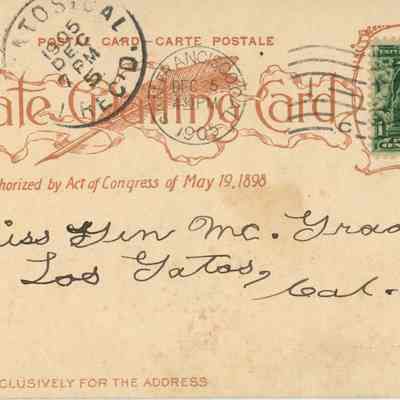 POSTAL CARD–CARTE POSTALE
ATOS, CAL.
DEC 5
1905
REC'D.
FRANCISCO, CAL.
DEC 5
4 PM
1905
ate Greeting Card
thorized by Act of Congress of May 19, 1898
iss Gen Mc. Grad
Los Gatos,
Cal.
XCLUSIVELY FOR THE ADDRESS